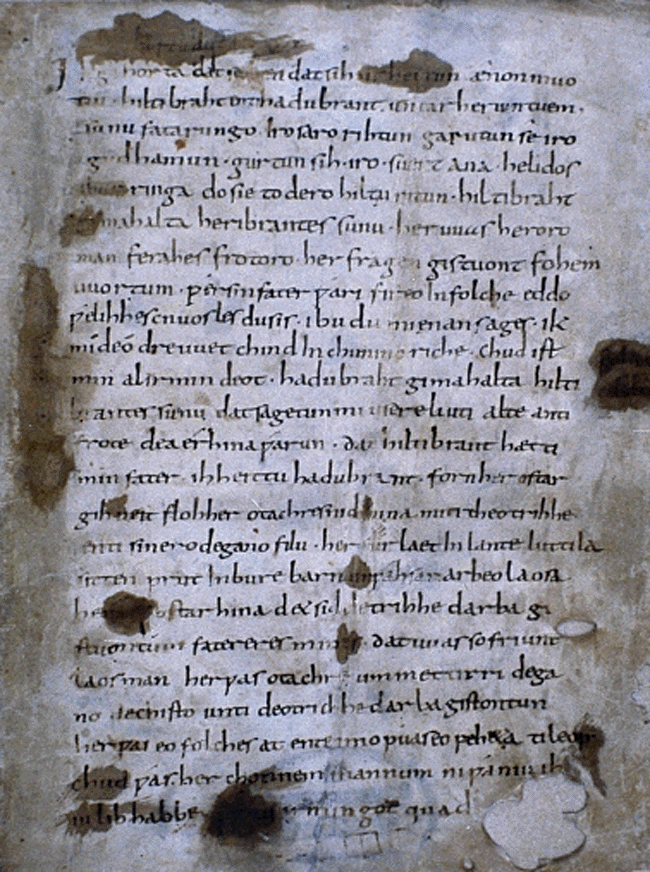 Ik gihorta dat seggen dat sih urhettun ænon muo
tin. hiltibraht enti hadubrant. untar heriun tuem.
sunu fatarungo. iro saro rihtun garutun se iro
gudhamun. gurtun sih. iro. suert ana. helidos
ringa do sie to dero hiltu ritun. hiltibraht
gimahalta heribrantes sunu. her uuas heroro
man ferahes frotoro. her fragen gistuont fohem
uuortum. ƿer sin fater ƿari fireo In folche eddo
ƿelihhes cnuosles du sis. ibu du mi enan sages. ik
mideo dre uuet chind In chunincriche. chud ist
min al irmin deot. hadubraht gimahalta hilti
brantes sunu dat sagetun mi usere liuti alte anti
frote dea erhina ƿarun. dat hiltibrant hætti
min fater. ih heittu hadubrant. forn her ostar
gihueit floh her otachres nid hina miti theotrihhe
enti sinero degano filu. her furlaet In lante luttila
sitten prut In bure barn unƿahsan arbeo laosa
her ostar hina det sid detrihhe darba gi
stuontum fatereres mines. dat uuas so friunt
laos man her ƿas otachre ummet tirri dega
no dechisto unti deotrichhe darba gistontun
her ƿas eo folches at ente imo ƿuas eo peheta ti leop
chud ƿas her chonnem mannum ni ƿaniu ih
iu lib habbe irmingot quad